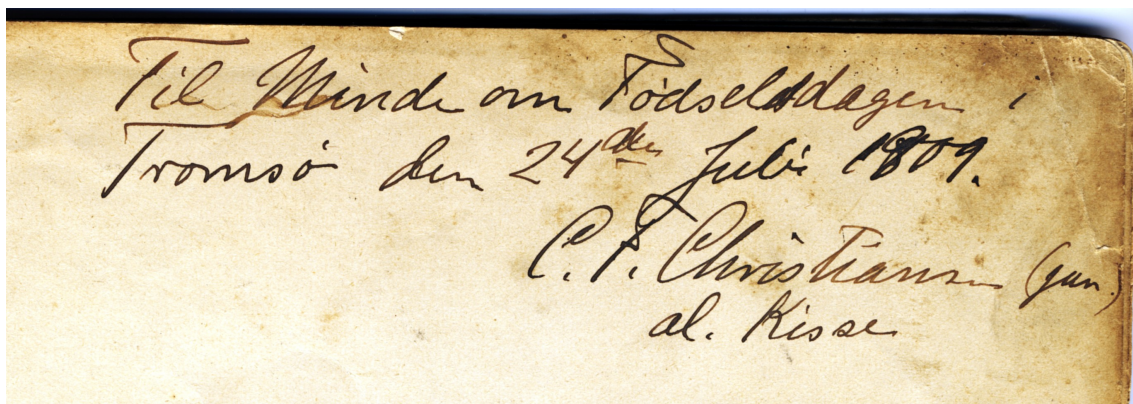 Til Minde om Fødselsdagen i
Tromsø den 24de Juli 1809.
C. F. Christiansen (jun.)
al. Kisse